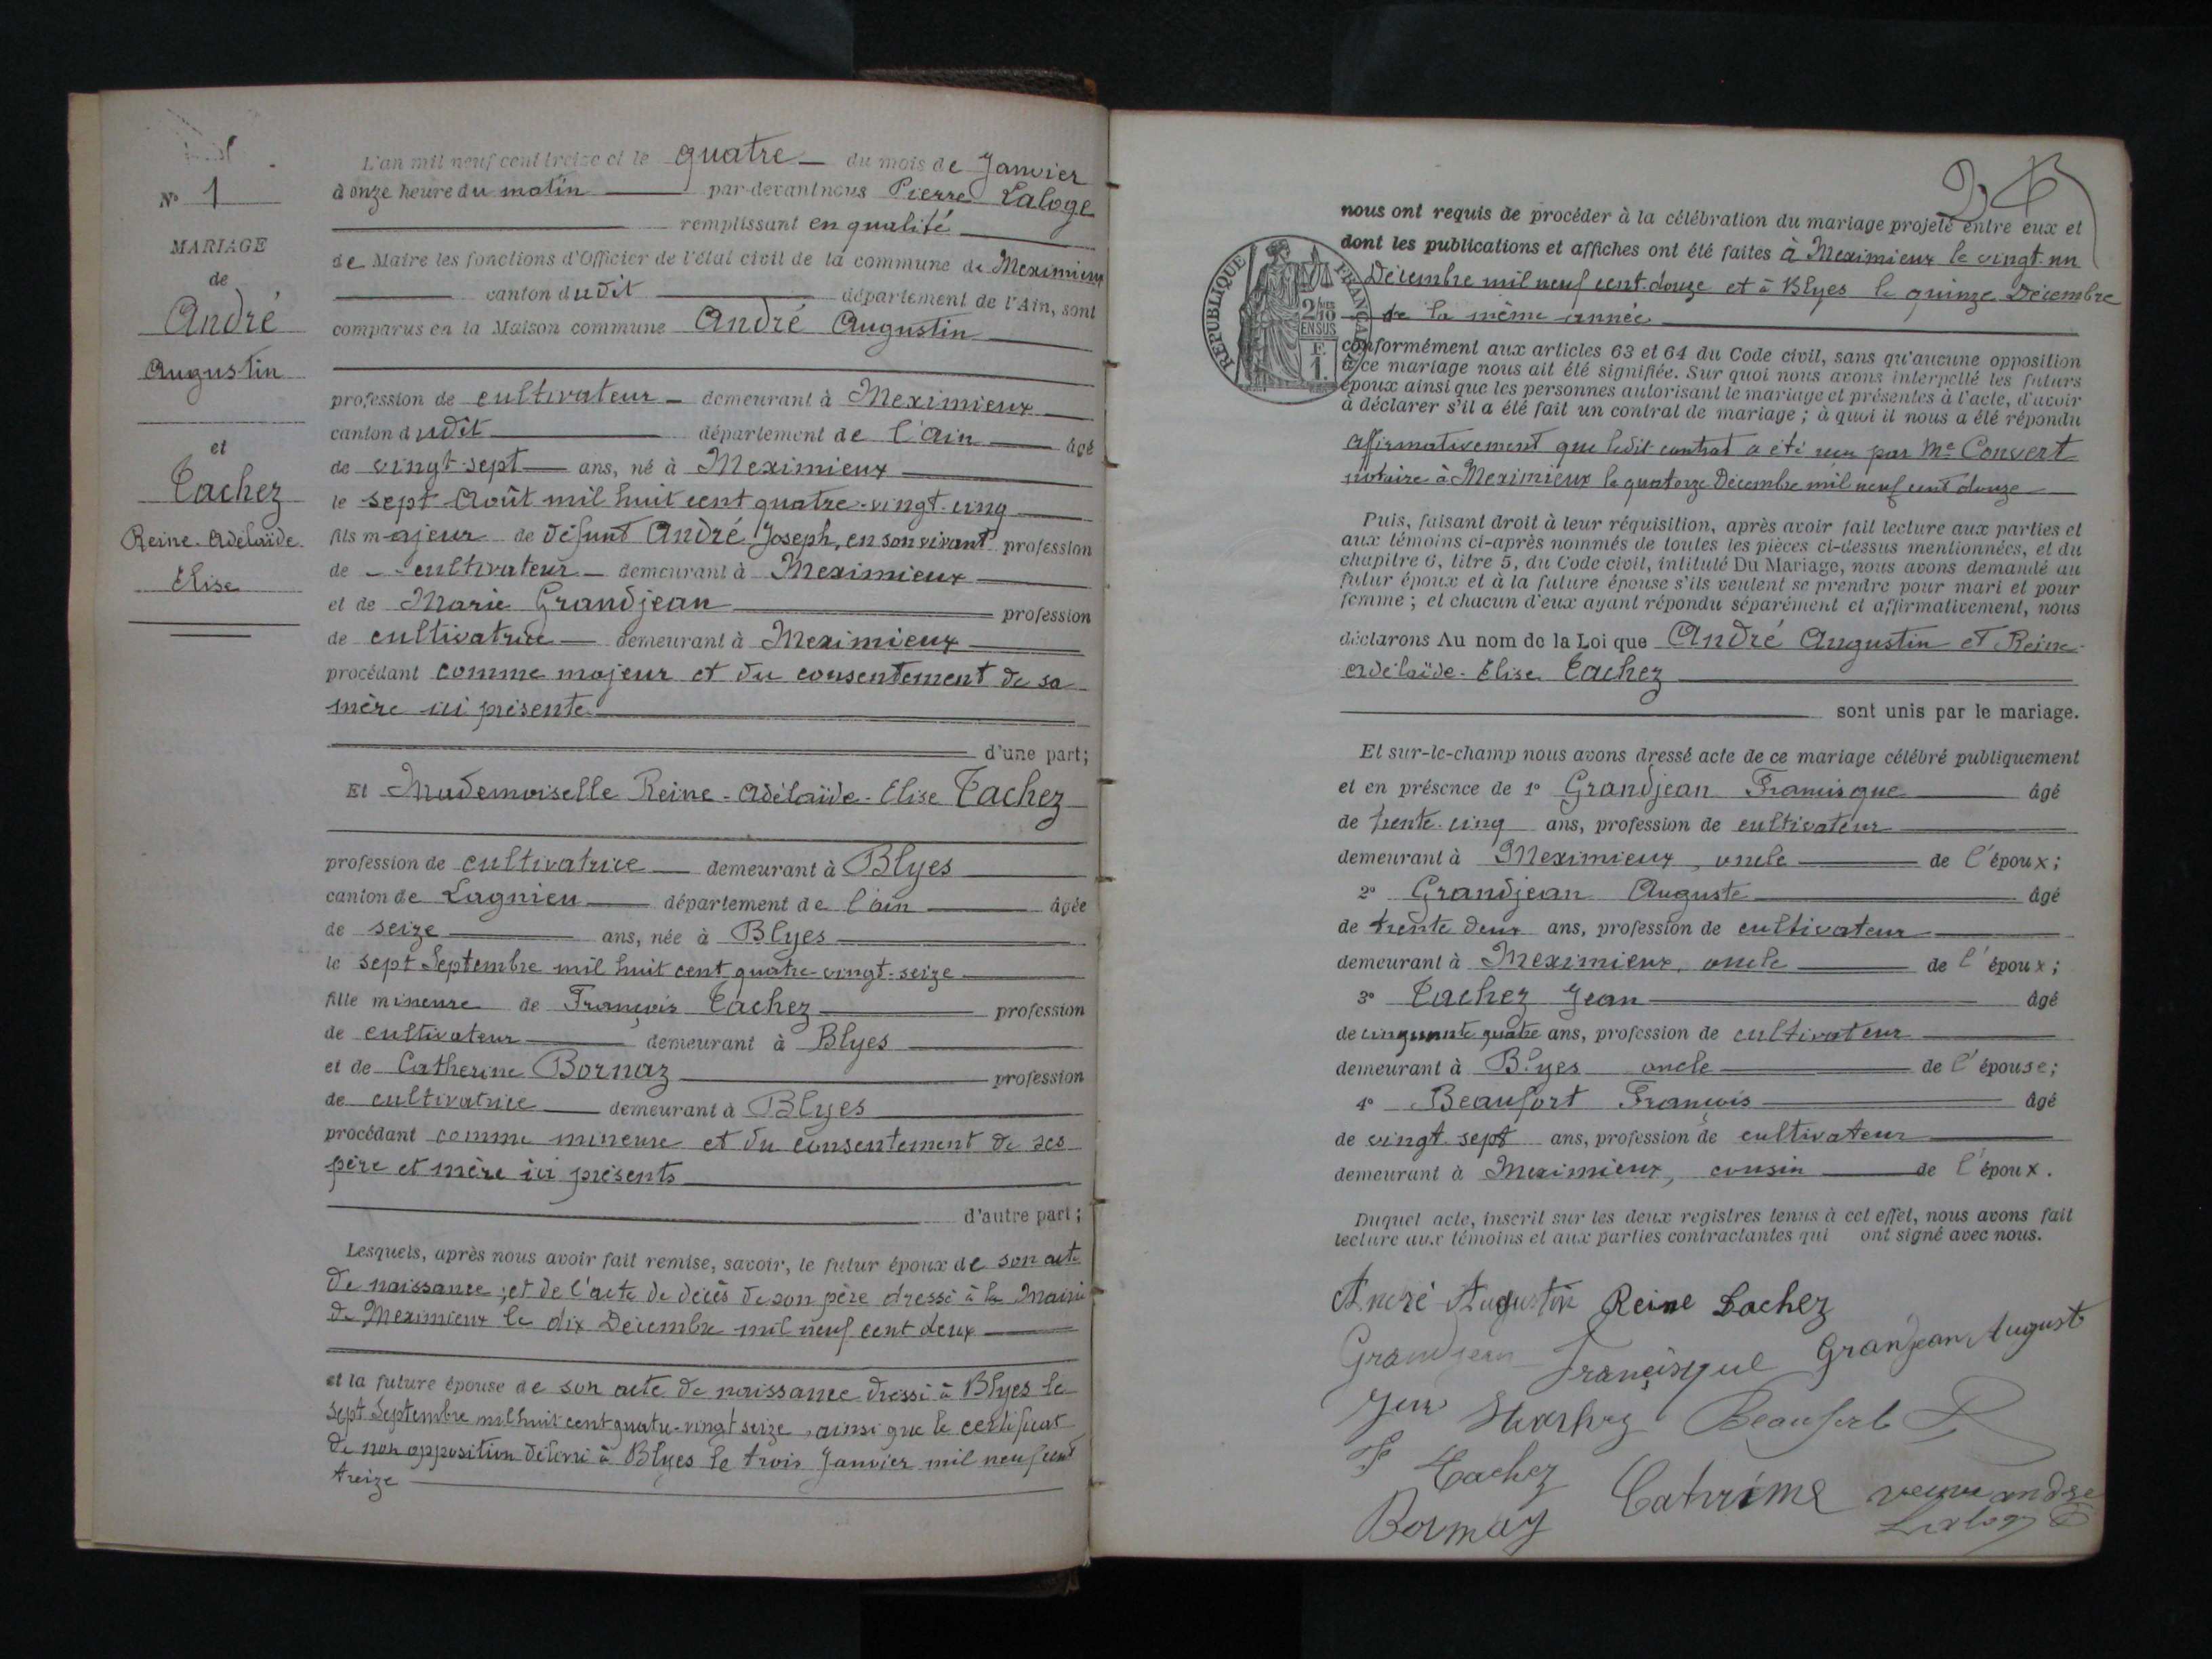 N° 1
MARIAGE
de
André
Augustin
et
Tachez
Reine-Adélaïde
Elise
L'an mil neuf cent treize et le quatre du mois de Janvier
à onze heure du matin par-devant nous Pierre Laloge
remplissant en qualité
de Maire les fonctions d'Officier de l'état civil de la commune de Meximieux
canton dudit département de l'Ain, sont
comparus en la Maison commune André Augustin
profession de cultivateur demeurant à Meximieux
canton dudit département de l'Ain âgé
de vingt-sept ans, né à Meximieux
le sept Août mil huit cent quatre-vingt-cinq
fils majeur de défunt André Joseph, en son vivant profession
de cultivateur demeurant à Meximieux
et de Marie Grandjean profession
de cultivatrice demeurant à Meximieux
procédant comme majeur et du consentement de sa
mère ici présente
d'une part;
Et Mademoiselle Reine-Adélaïde-Elise Tachez
profession de cultivatrice demeurant à Blyes
canton de Lagnieu département de l'ain âgée
de seize ans, née à Blyes
le sept Septembre mil huit cent quatre-vingt-seize
fille mineure de François Tachez profession
de cultivateur demeurant à Blyes
et de Catherine Bornaz profession
de cultivatrice demeurant à Blyes
procédant comme mineure et du consentement de ses
père et mère ici présents
d'autre part;
Lesquels, après nous avoir fait remise, savoir, le futur époux de son acte
de naissance; et de l'acte de décès de son père dressé à la Mairie
de Meximieux le dix Décembre mil neuf cent deux
et la future épouse de son acte de naissance dressé à Blyes le
sept Septembre mil huit cent quatre-vingt seize, ainsi que le certificat
de non opposition délivré à Blyes le trois Janvier mil neuf cent
treize
2
nous ont requis de procéder à la célébration du mariage projeté entre eux et
dont les publications et affiches ont été faites à Meximieux le vingt-un
Décembre mil neuf cent-douze et à Blyes le quinze Décembre
de la même année
RÉPUBLIQUE FRANÇAISE
2/10
EN SUS
F.
1.
conformément aux articles 63 et 64 du Code civil, sans qu'aucune opposition
à ce mariage nous ait été signifiée. Sur quoi nous avons interpellé les futurs
époux ainsi que les personnes autorisant le mariage et présentes à l'acte, d'avoir
à déclarer s'il a été fait un contrat de mariage; à quoi il nous a été répondu
affirmativement que ledit contrat a été reçu par Me Convert
notaire à Meximieux le quatorze Décembre mil neuf cent douze
Puis, faisant droit à leur réquisition, après avoir fait lecture aux parties et
aux témoins ci-après nommés de toutes les pièces ci-dessus mentionnées, et du
chapitre 6, titre 5, du Code civil, intitulé Du Mariage, nous avons demandé au
futur époux et à la future épouse s'ils veulent se prendre pour mari et pour
femme; et chacun d'eux ayant répondu séparément et affirmativement, nous
déclarons Au nom de la Loi que André Augustin et Reine-
Adélaïde-Elise Tachez
sont unis par le mariage.
Et sur-le-champ nous avons dressé acte de ce mariage célébré publiquement
et en présence de 1° Grandjean Francisque âgé
de trente-cinq ans, profession de cultivateur
demeurant à Meximieux, oncle de l'époux;
2° Grandjean Auguste âgé
de trente deux ans, profession de cultivateur
demeurant à Meximieux, oncle de l'époux;
3° Tachez Jean âgé
de cinquante quatre ans, profession de cultivateur
demeurant à Blyes oncle de l'épouse;
4° Beaufort François âgé
de vingt-sept ans, profession de cultivateur
demeurant à Meximieux, cousin de l'époux.
Duquel acte, inscrit sur les deux registres tenus à cet effet, nous avons fait
lecture aux témoins et aux parties contractantes qui ont signé avec nous.
André Augustin Reine Tachez
Grandjean Françisque Granjean August
Jean Beaufort
F Tachez Catrime veuve andre
Bornaz